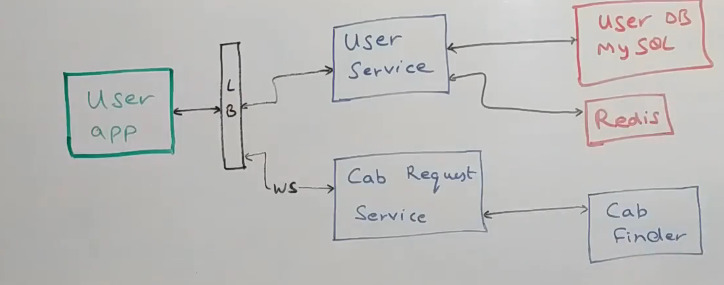 User
app
L
B
User
Service
User DB
MySQL
Redis
WS
Cab Request
Service
Cab
Finder